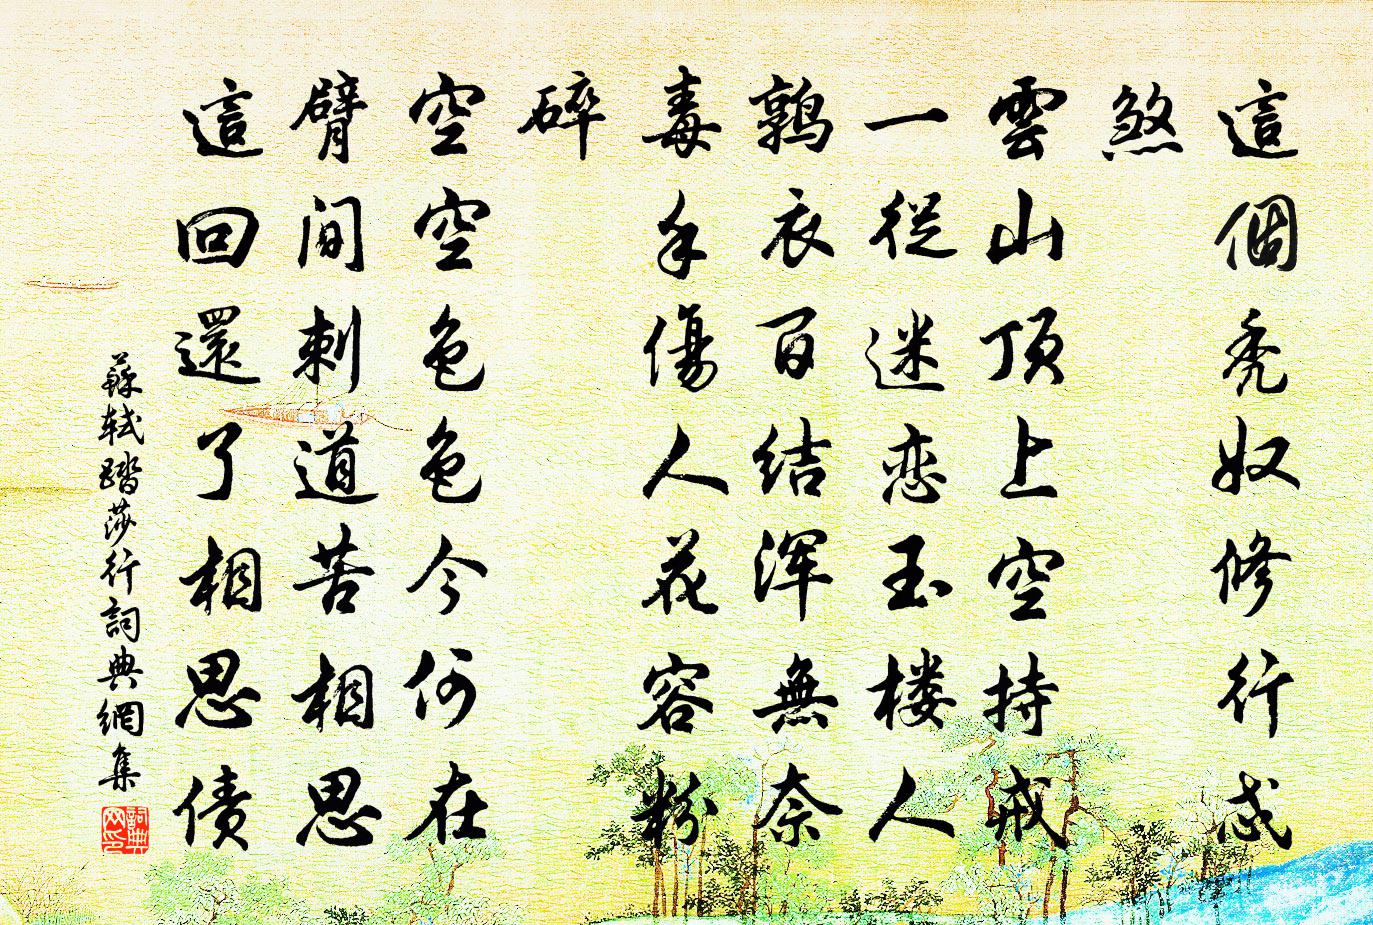 這個禿奴修行忒
煞
雲山顶上空持戒
一從迷恋玉楼人
鶉衣百结浑無奈
毒手傷人花容粉
碎
空空色色今何在
臂间刺道苦相思
這回還了相思债
蘇轼踏莎行詞典網集
詞典网印